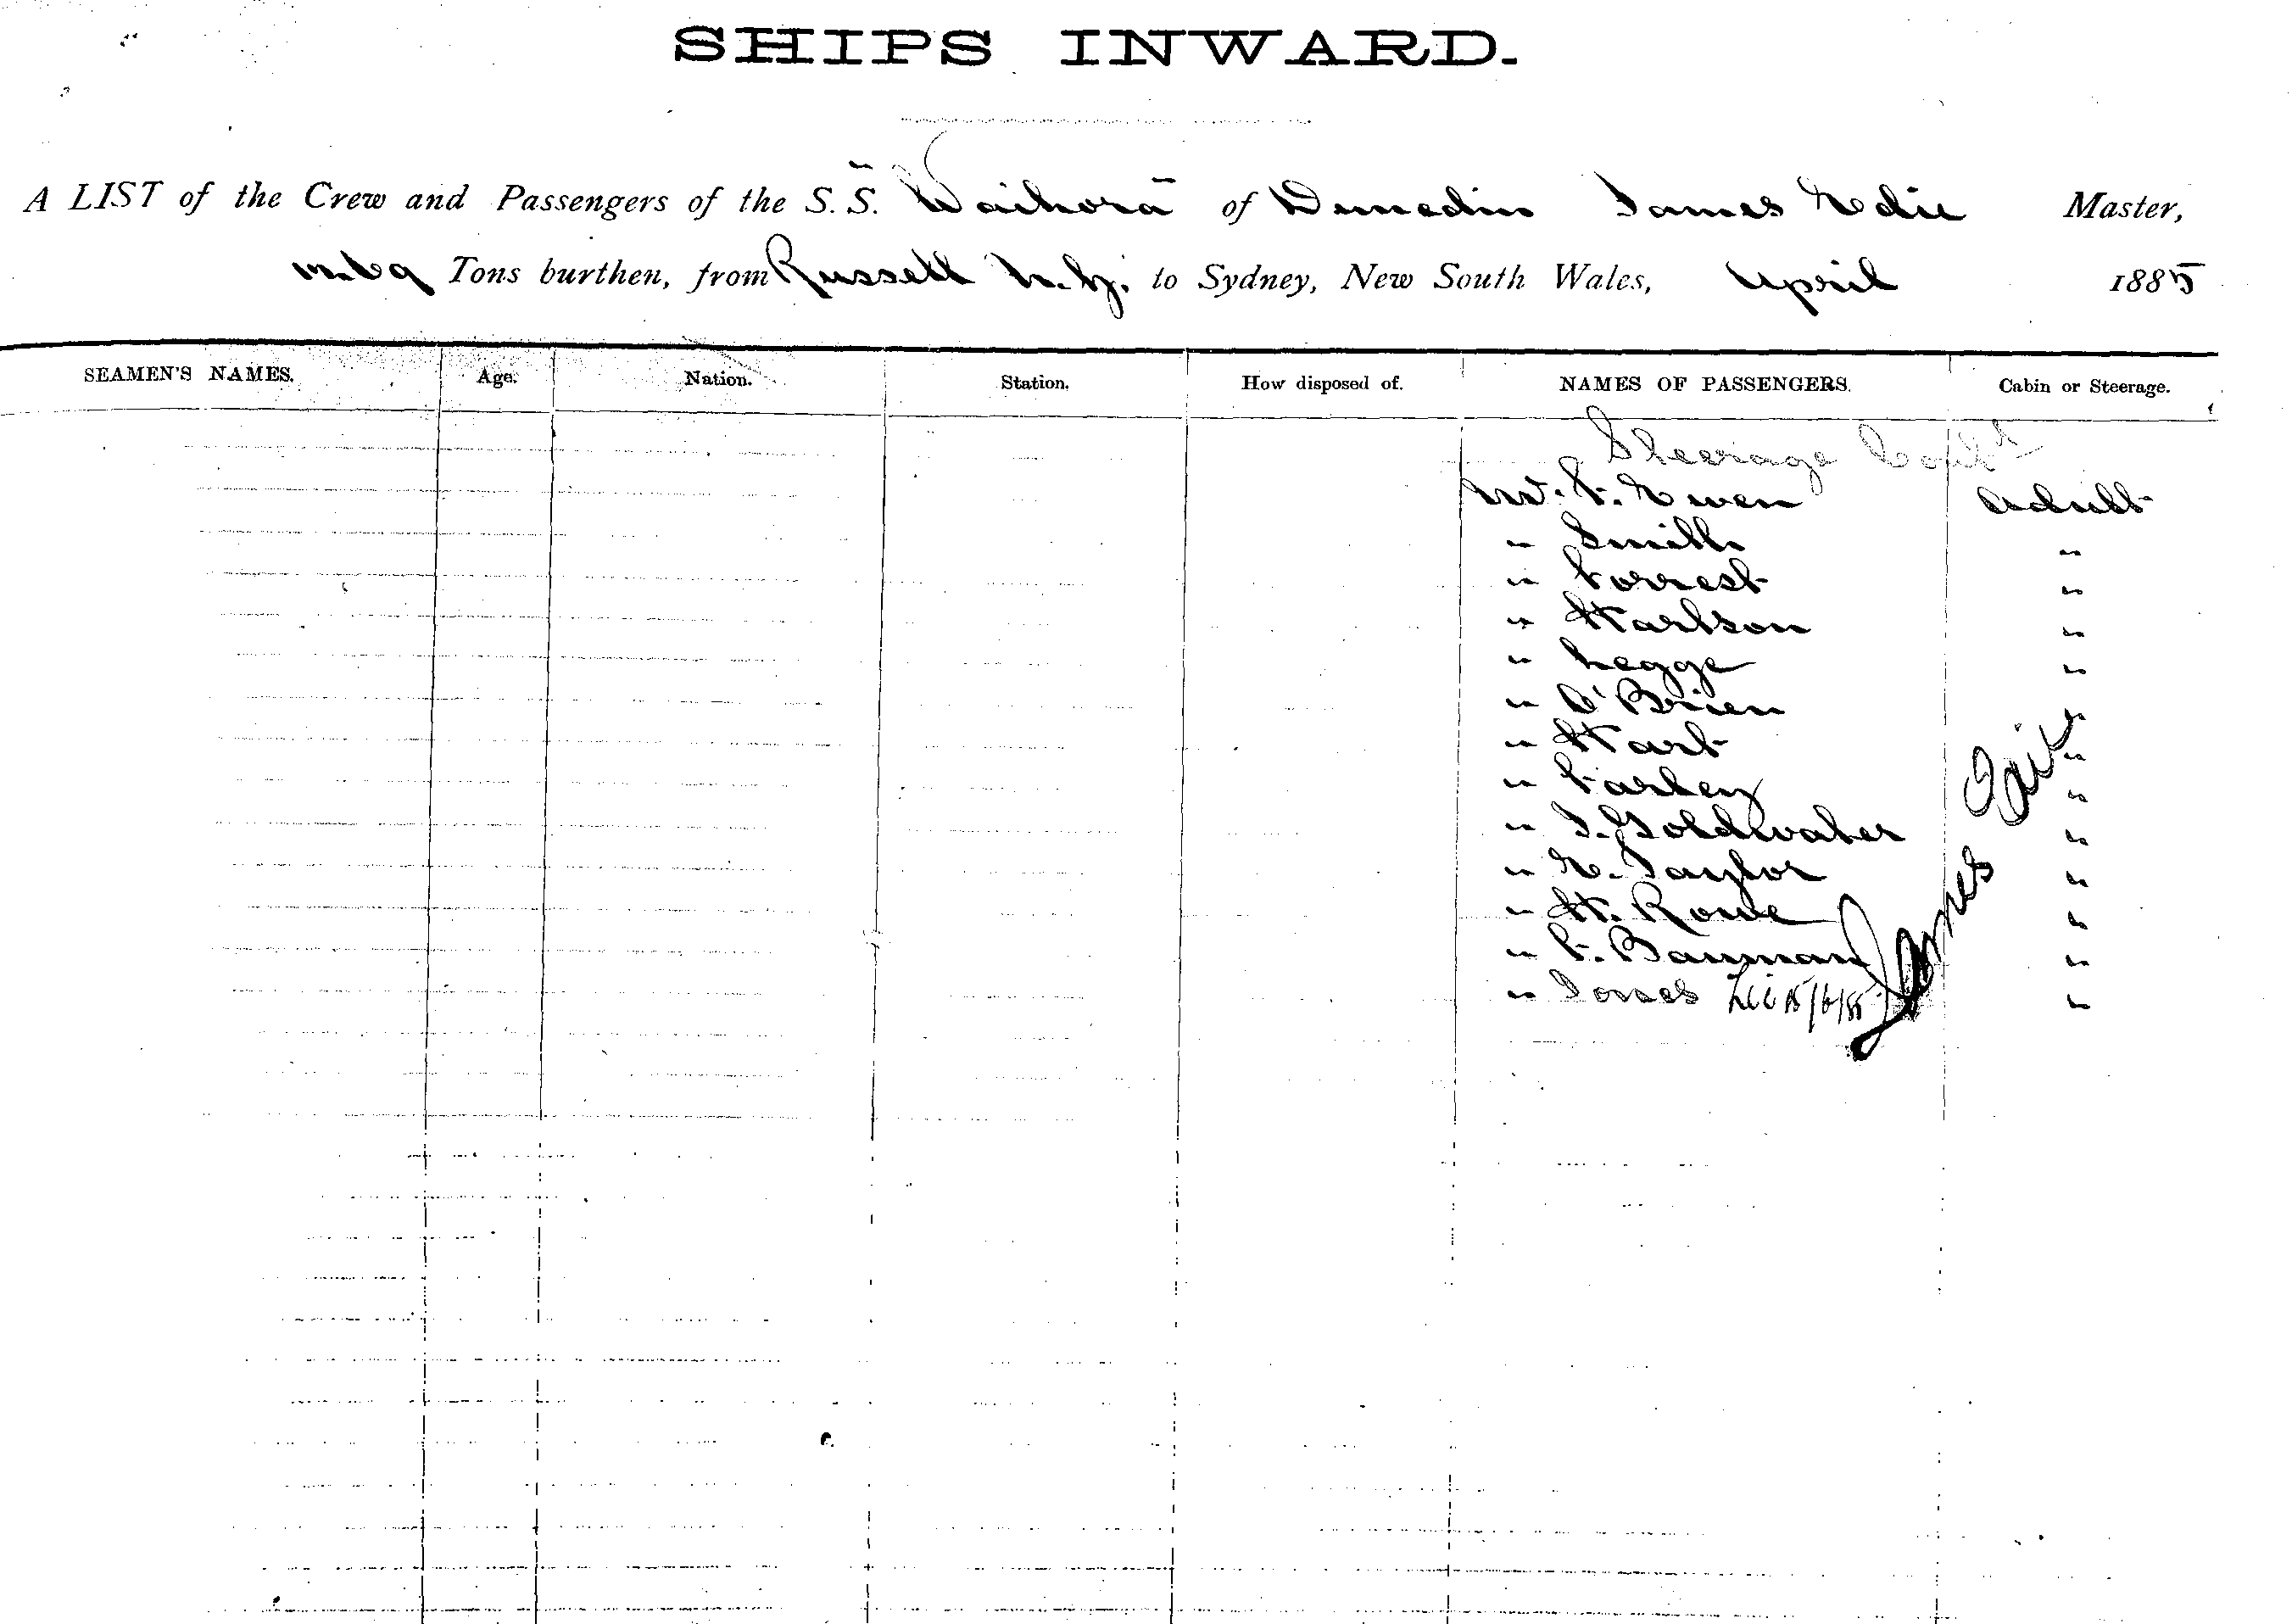 SHIPS INWARD.
A LIST of the Crew and Passengers of the S.S. "Waihora" of Dunedin James Edie Master,
Tons burthen, from Russell N.Z. to Sydney, New South Wales, April 1885
SEAMEN'S NAMES. Age. Nation. Station. How disposed of. NAMES OF PASSENGERS. Cabin or Steerage.
Steerage Contd
Mr. F. Ewen Adult
" Smith "
" Forrest "
" Harlson "
" Legge "
" O'Brien "
" Hart "
" Farley "
" J. Goldwater "
" E. Taylor "
" H. Rowe "
" F. Bauman "
" Jones "
James Edie